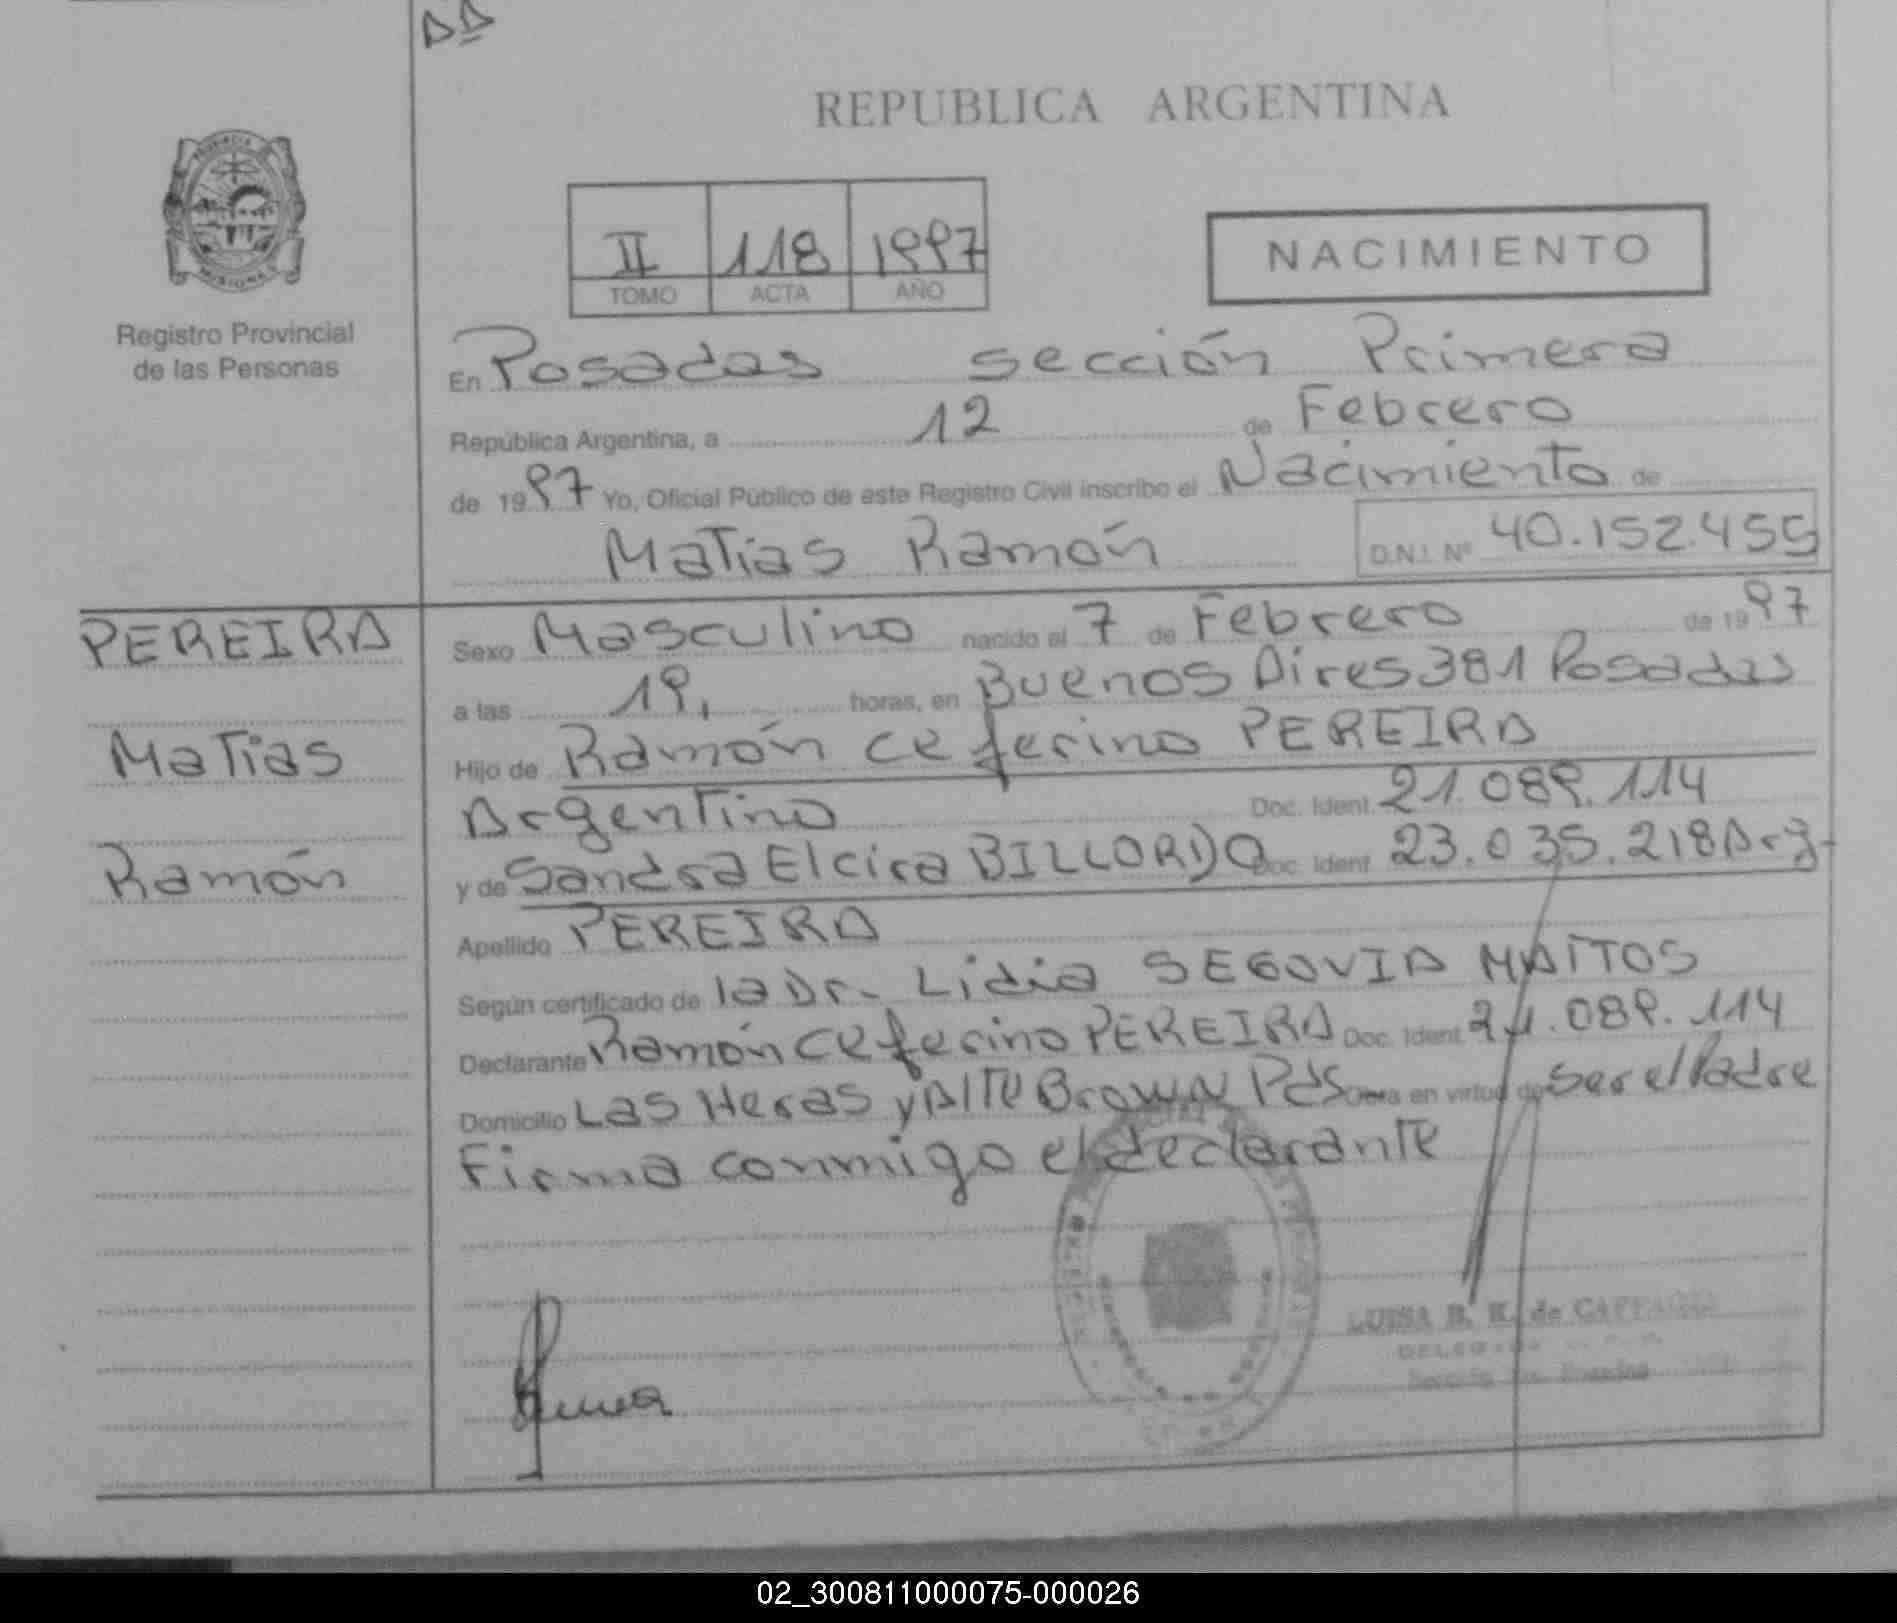 REPUBLICA ARGENTINA
II 118 1997
TOMO ACTA AÑO
NACIMIENTO
Registro Provincial
de las Personas
En Posadas sección Primera
República Argentina, a 12 de Febrero
de 1997 Yo, Oficial Público de este Registro Civil inscribo el Nacimiento de
Matias Ramón D.N.I. Nº 40.152.455
PEREIRA
Matias
Ramón
Sexo Masculino nacido el 7 de Febrero de 1997
a las 19, horas, en Buenos Aires 381 Posadas
Hijo de Ramón Ceferino PEREIRA
Argentino Doc. Ident. 21.089.114
y de Sandra Elcira BILLORDO Doc. Ident. 23.035.218 Arg.
Apellido PEREIRA
Según certificado de la Dr. Lidia SEGOVIA MATTOS
Declarante Ramón Ceferino PEREIRA Doc. Ident. 21.089.114
Domicilio Las Heras y Alte Brown Pds Obra en virtud de Ser el Padre
Firma conmigo el declarante
LUISA B. K. de
02_300811000075-000026